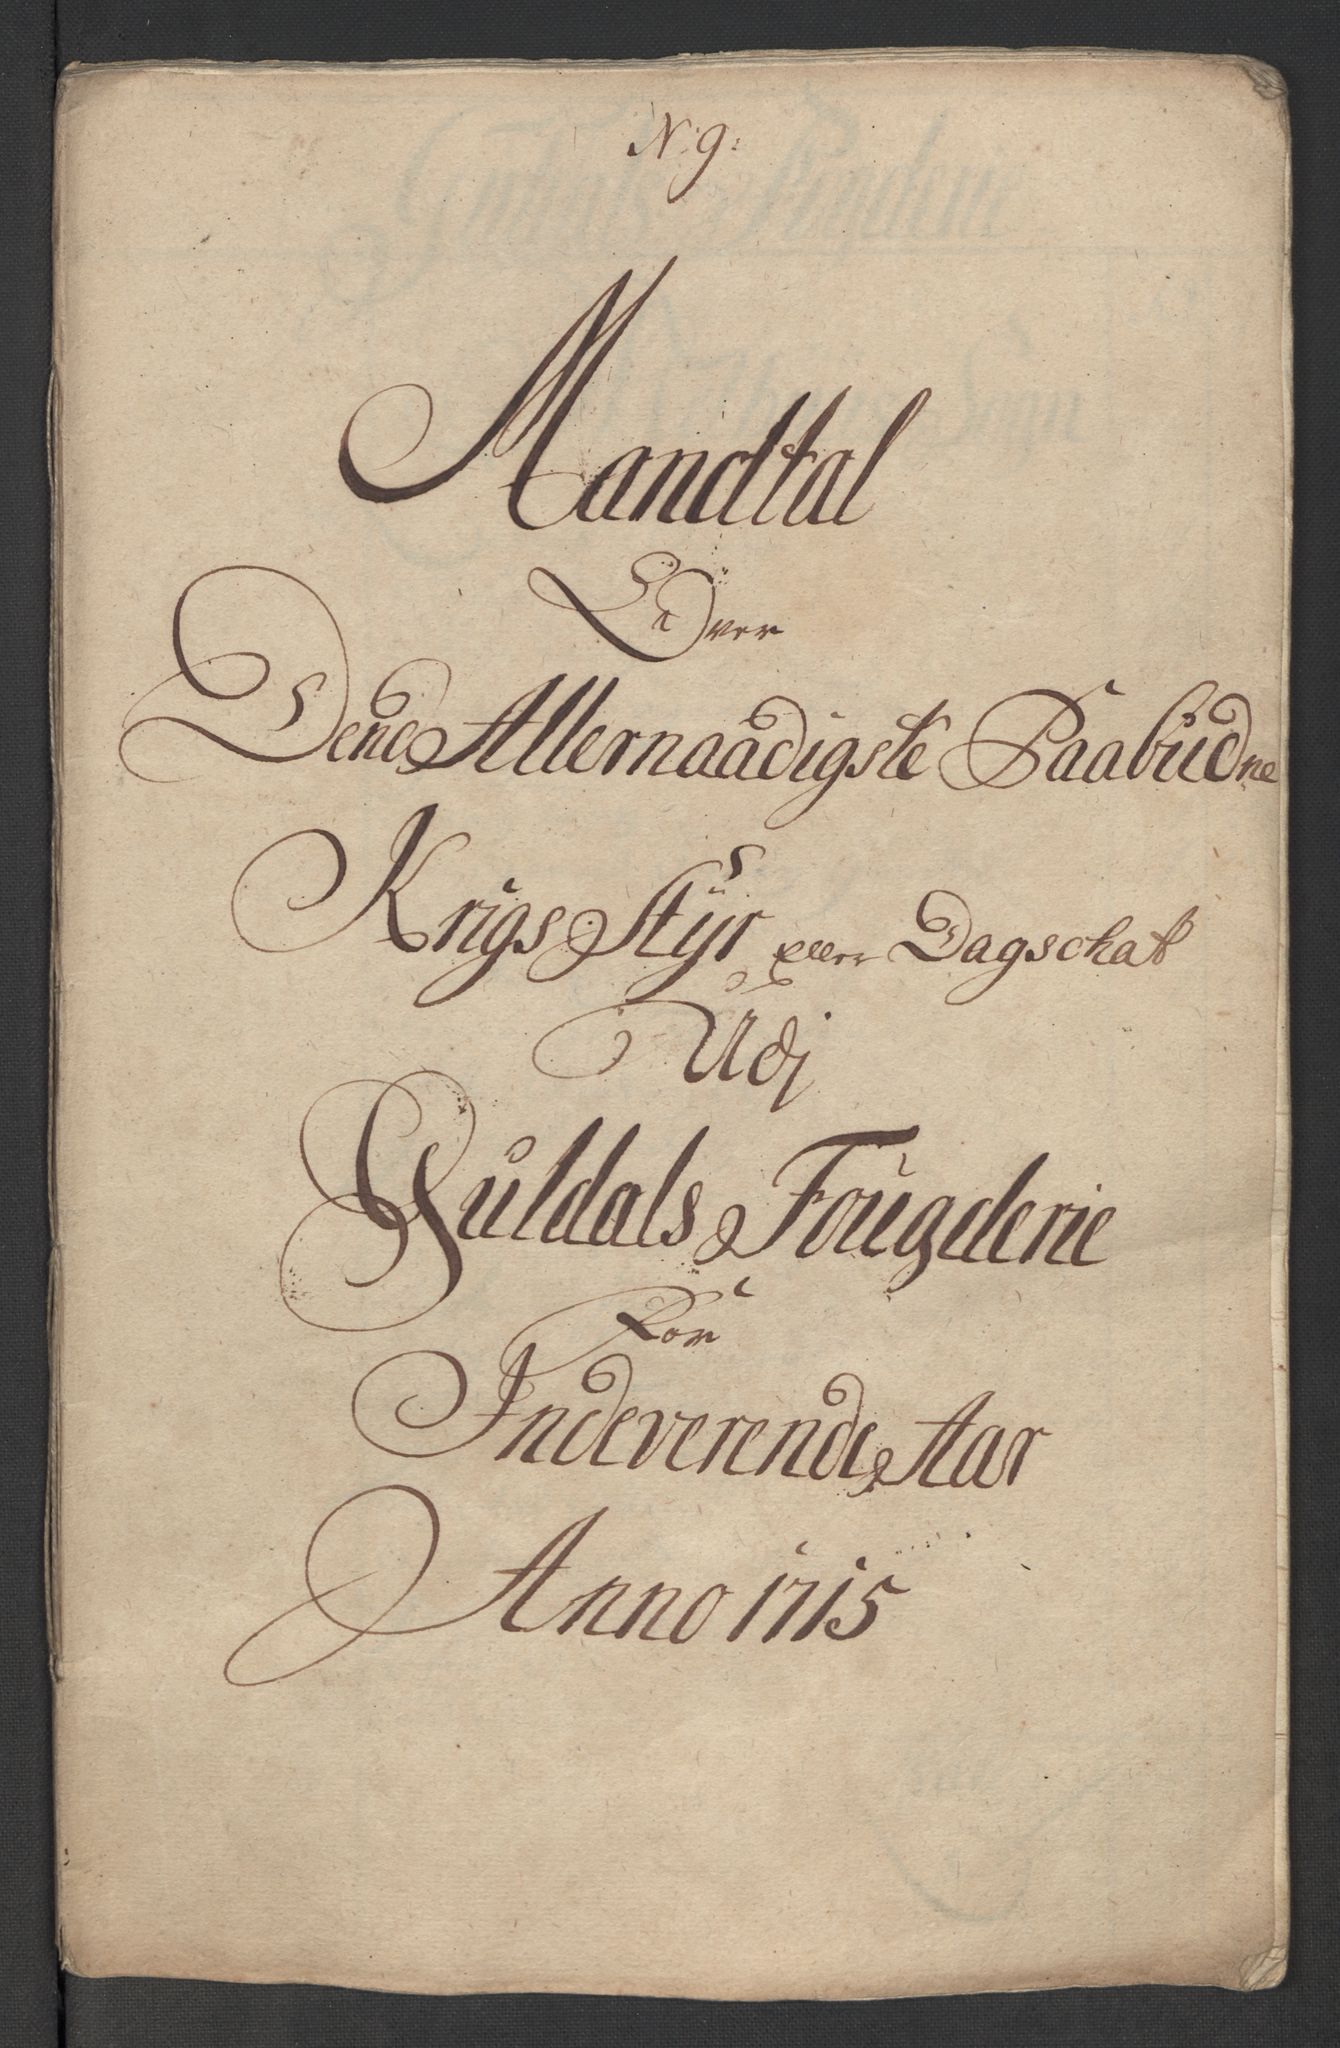 N: 9:
Mandtal
Over
Dend Allernaadigste Paabudne
Krigs Styr eller Dagschatt
Udj
Guldals Fougderie
For
Indeverende Aar
Anno 1715